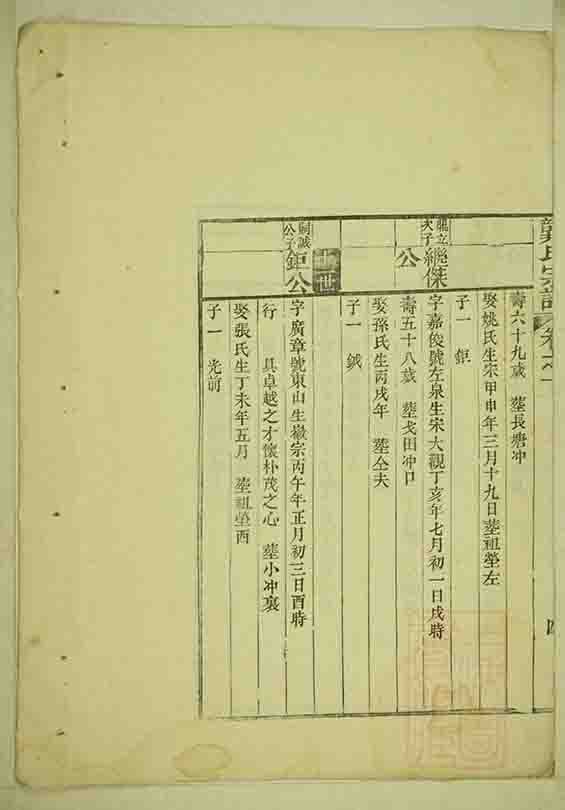 壽六十九歲 塟長塘冲
娶姚氏生宋甲申年三月十九日塟祖塋左
子一 鉅
龍立次子
繼傑公
字嘉俊號左泉生宋大觀丁亥年七月初一日戌時
壽五十八歲 塟戈田冲口
娶孫氏生丙戌年 塟仝夫
子一 鉞
十世
嗣誠公子
鉅公
字廣章號東山生徽宗丙午年正月初三日酉時
行 具卓越之才懷朴茂之心 塟小冲裏
娶張氏生丁未年五月 塟祖塋西
子一 光前